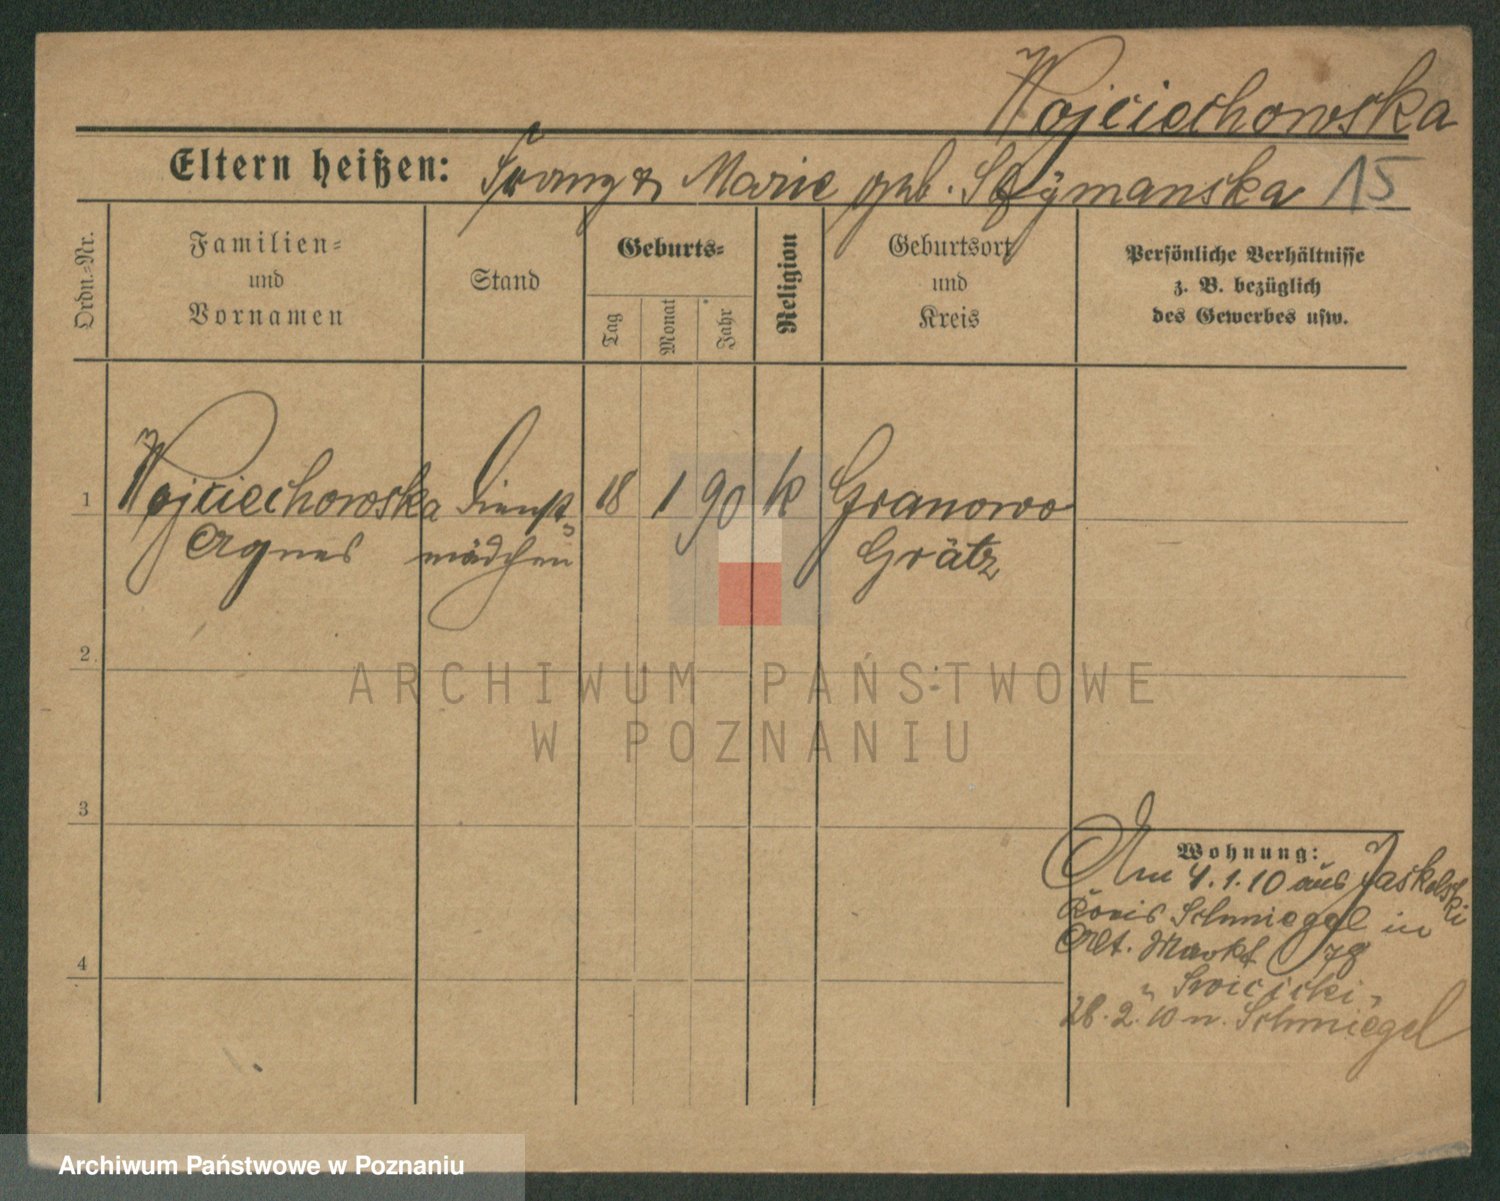 Wojciechowska
Eltern heißen: Franz & Marie geb. Szymanska 15
Ordn.=Nr.
Familien=
und
Vornamen
Stand
Geburts=
Tag
Monat
Jahr
Religion
Geburtsort
und
Kreis
Persönliche Verhältnisse
z. B. bezüglich
des Gewerbes usw.
1 Wojciechowska Dienst= 18 1 90 k Granowo
Agnes mädchen Grätz
2
3
4
Wohnung:
Am 4.1.10 aus Jaskolski
Kreis Schmiegel in
Alt. Markt 78
" Swicicki "
28.2.10 n. Schmiegel
ARCHIWUM PAŃSTWOWE
W POZNANIU
Archiwum Państwowe w Poznaniu